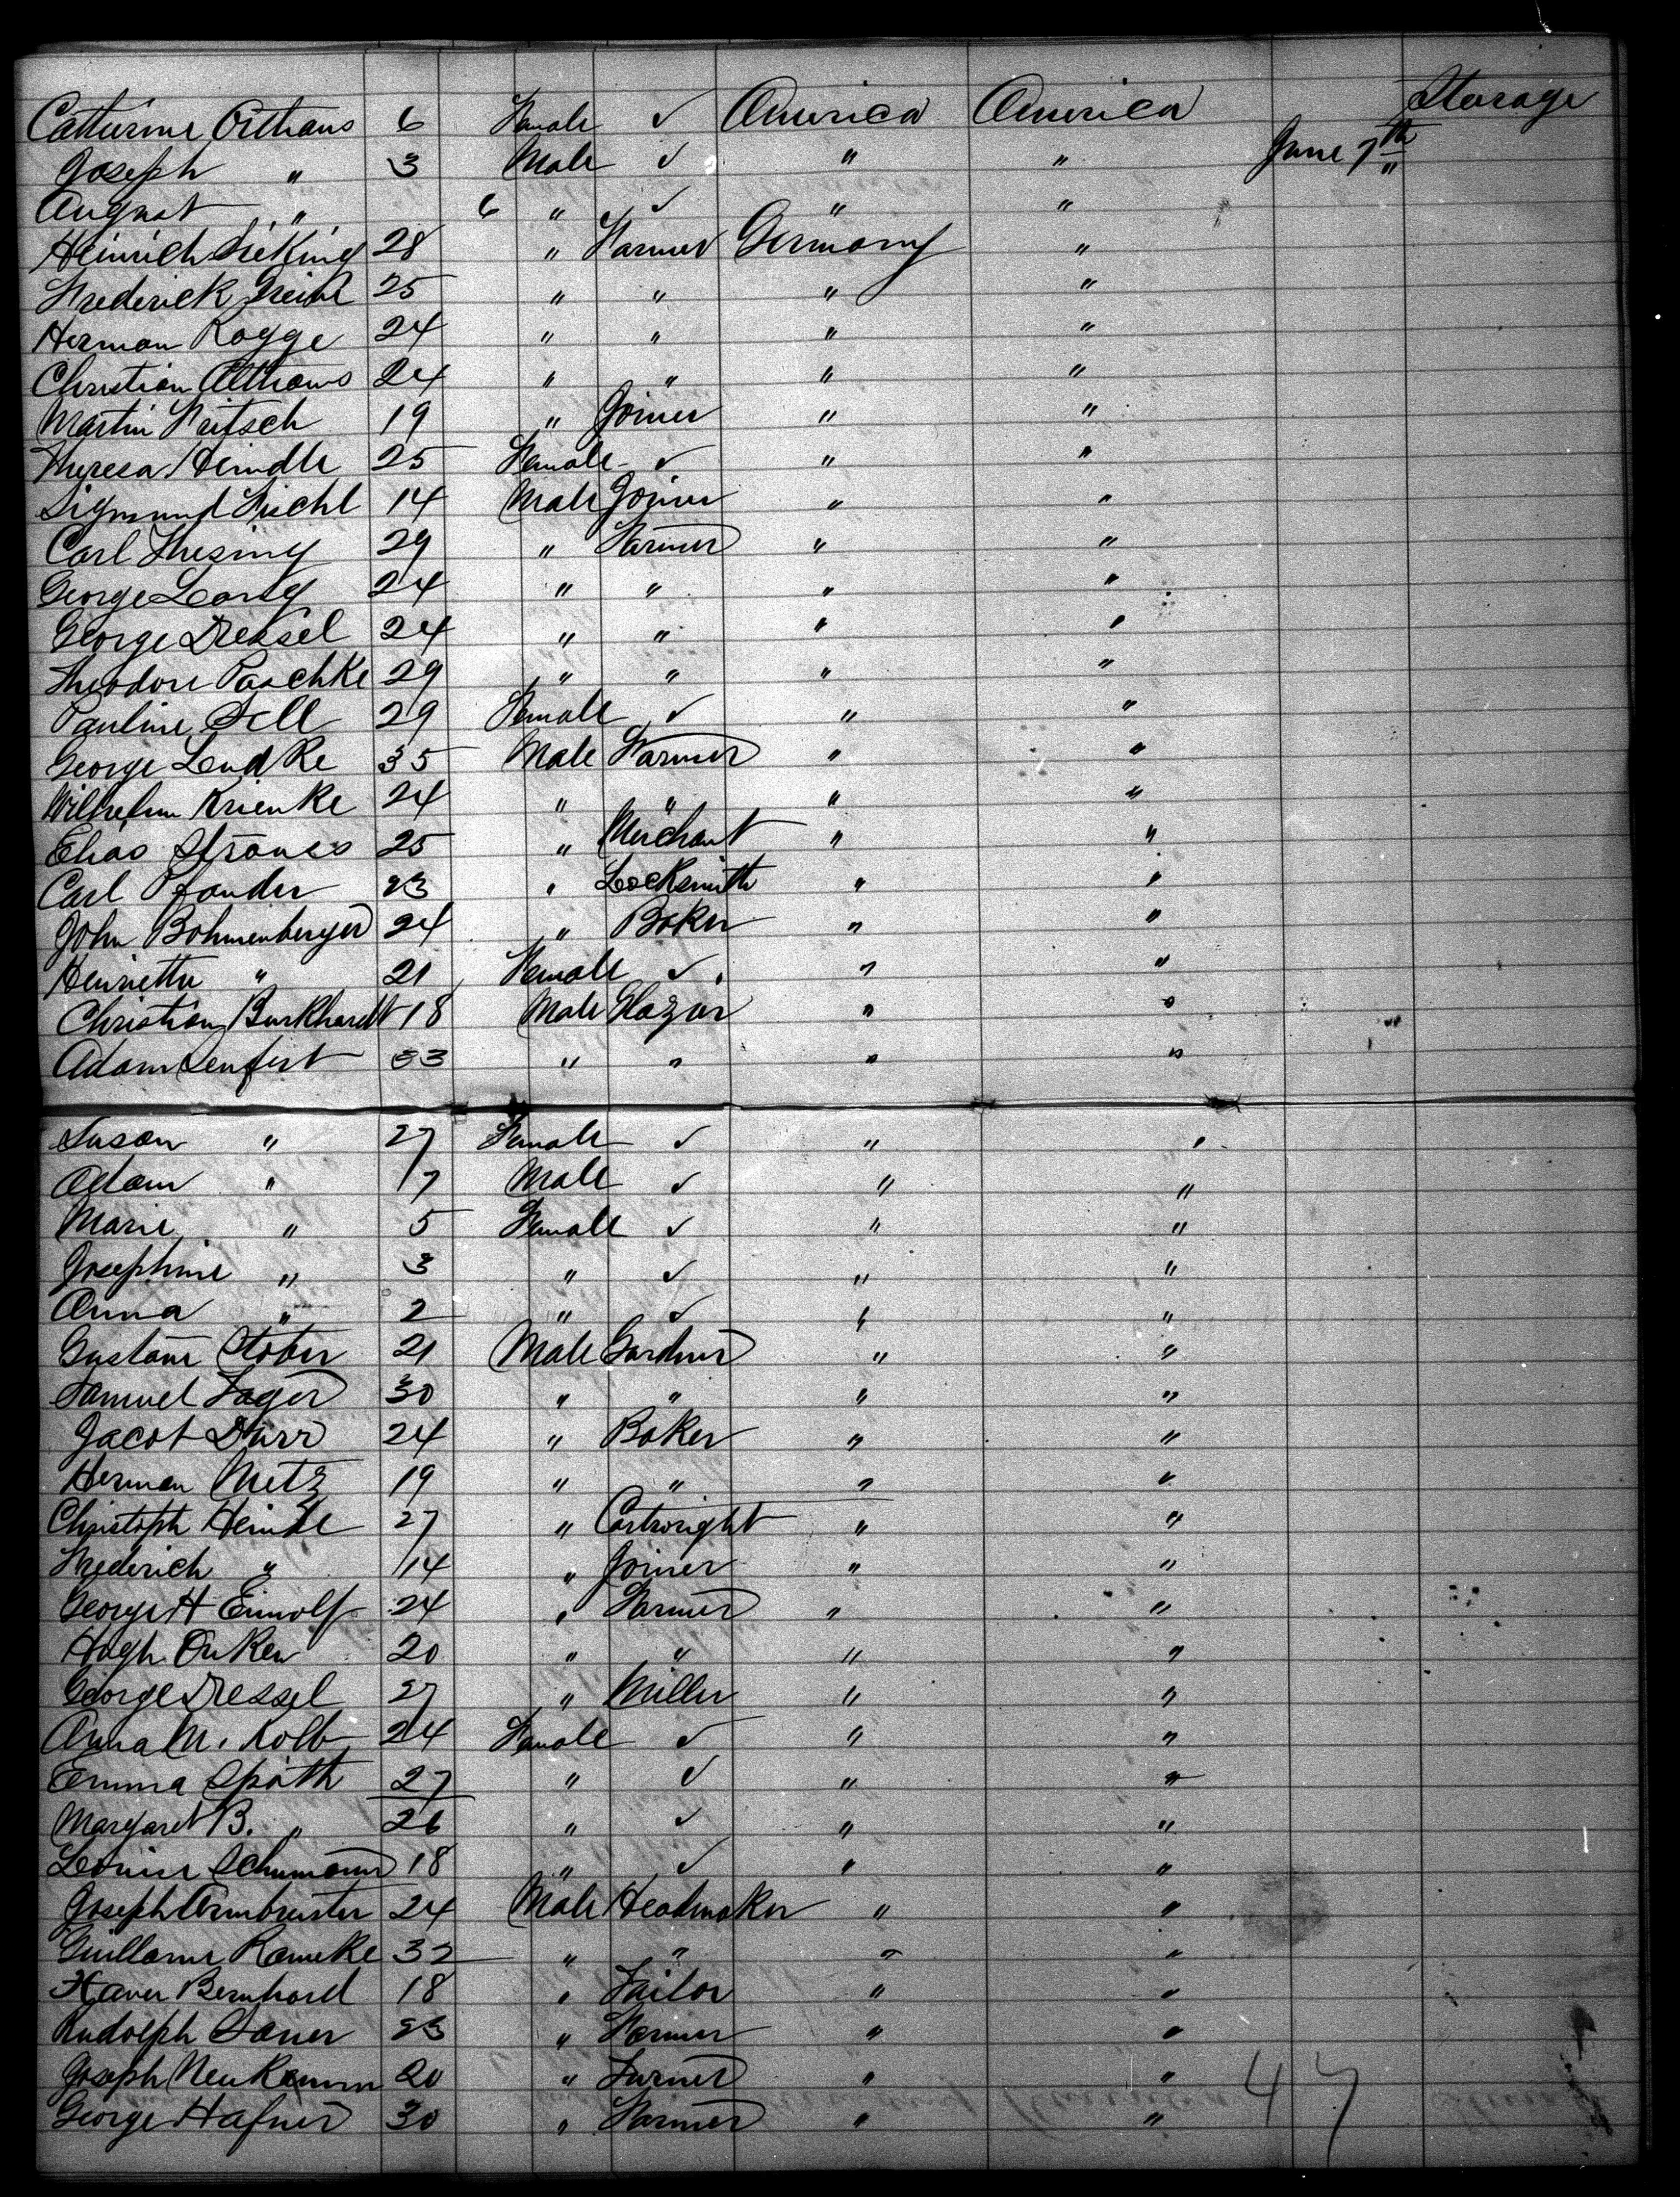 Catherine Orthaus 6 Female ✓ America America Storage
Joseph " 3 Male ✓ " " June 7th "
August " 6 " ✓ " "
Heinrich Sieking 28 " Farmer Germany "
Frederick 25 " " " "
Herman Rogge 24 " " " "
Christian Althaus 24 " " " "
Martin Fritsch 19 " Joiner " "
Theresa Heindle 25 Female ✓ " "
Sigmund 14 Male Joiner " "
Carl Thesing 29 " Farmer " "
George 24 " " " "
George Dressel 24 " " " "
Theodore Paschke 29 " " " "
Pauline Sell 29 Female ✓ " "
George Lendke 35 Male Farmer " "
Wilhelm Krienke 24 " " " "
Elias Strauss 25 " Merchant " "
Carl Pfander 23 " Locksmith " "
John Bohmenberger 24 " Baker " "
Henrietta " 21 Female ✓ " "
Christian Burkhardt 18 Male Glazer " "
Adam Senfert 33 " " " "
Susan " 27 Female ✓ " "
Adam " 7 Male ✓ " "
Marie " 5 Female ✓ " "
Josephine " 3 " ✓ " "
Anna " 2 " ✓ " "
Gustave Stober 21 Male Gardner " "
Samuel Sager 30 " " " "
Jacob Durr 24 " Baker " "
Herman Metz 19 " " " "
Christoph Heindle 27 " Cartwright " "
Frederich " 14 " Joiner " "
George H Eimolf 24 " Farmer " "
Hugh Onken 20 " " " "
George Dressel 27 " Miller " "
Anna M. Kolb 24 Female ✓ " "
Emma Späth 27 " ✓ " "
Margaret B. " 26 " ✓ " "
Louise Schumann 18 " ✓ " "
Joseph Armbruster 24 Male Headmaker " "
Guillame Rameke 32 " " " "
Xaver Bernhard 18 " Tailor " "
Rudolph Sauer 23 " Farmer " "
Joseph Neukamm 20 " Turner " "
George Hafner 30 " Farmer " "
47